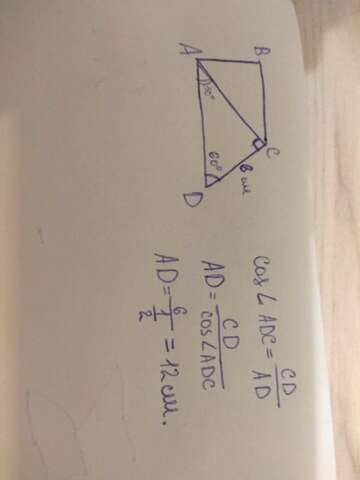 A
B
30°
60°
6 см
C
D
cos∠ADC = CD/AD
AD = CD/cos∠ADC
AD = 6/(1/2) = 12 см.